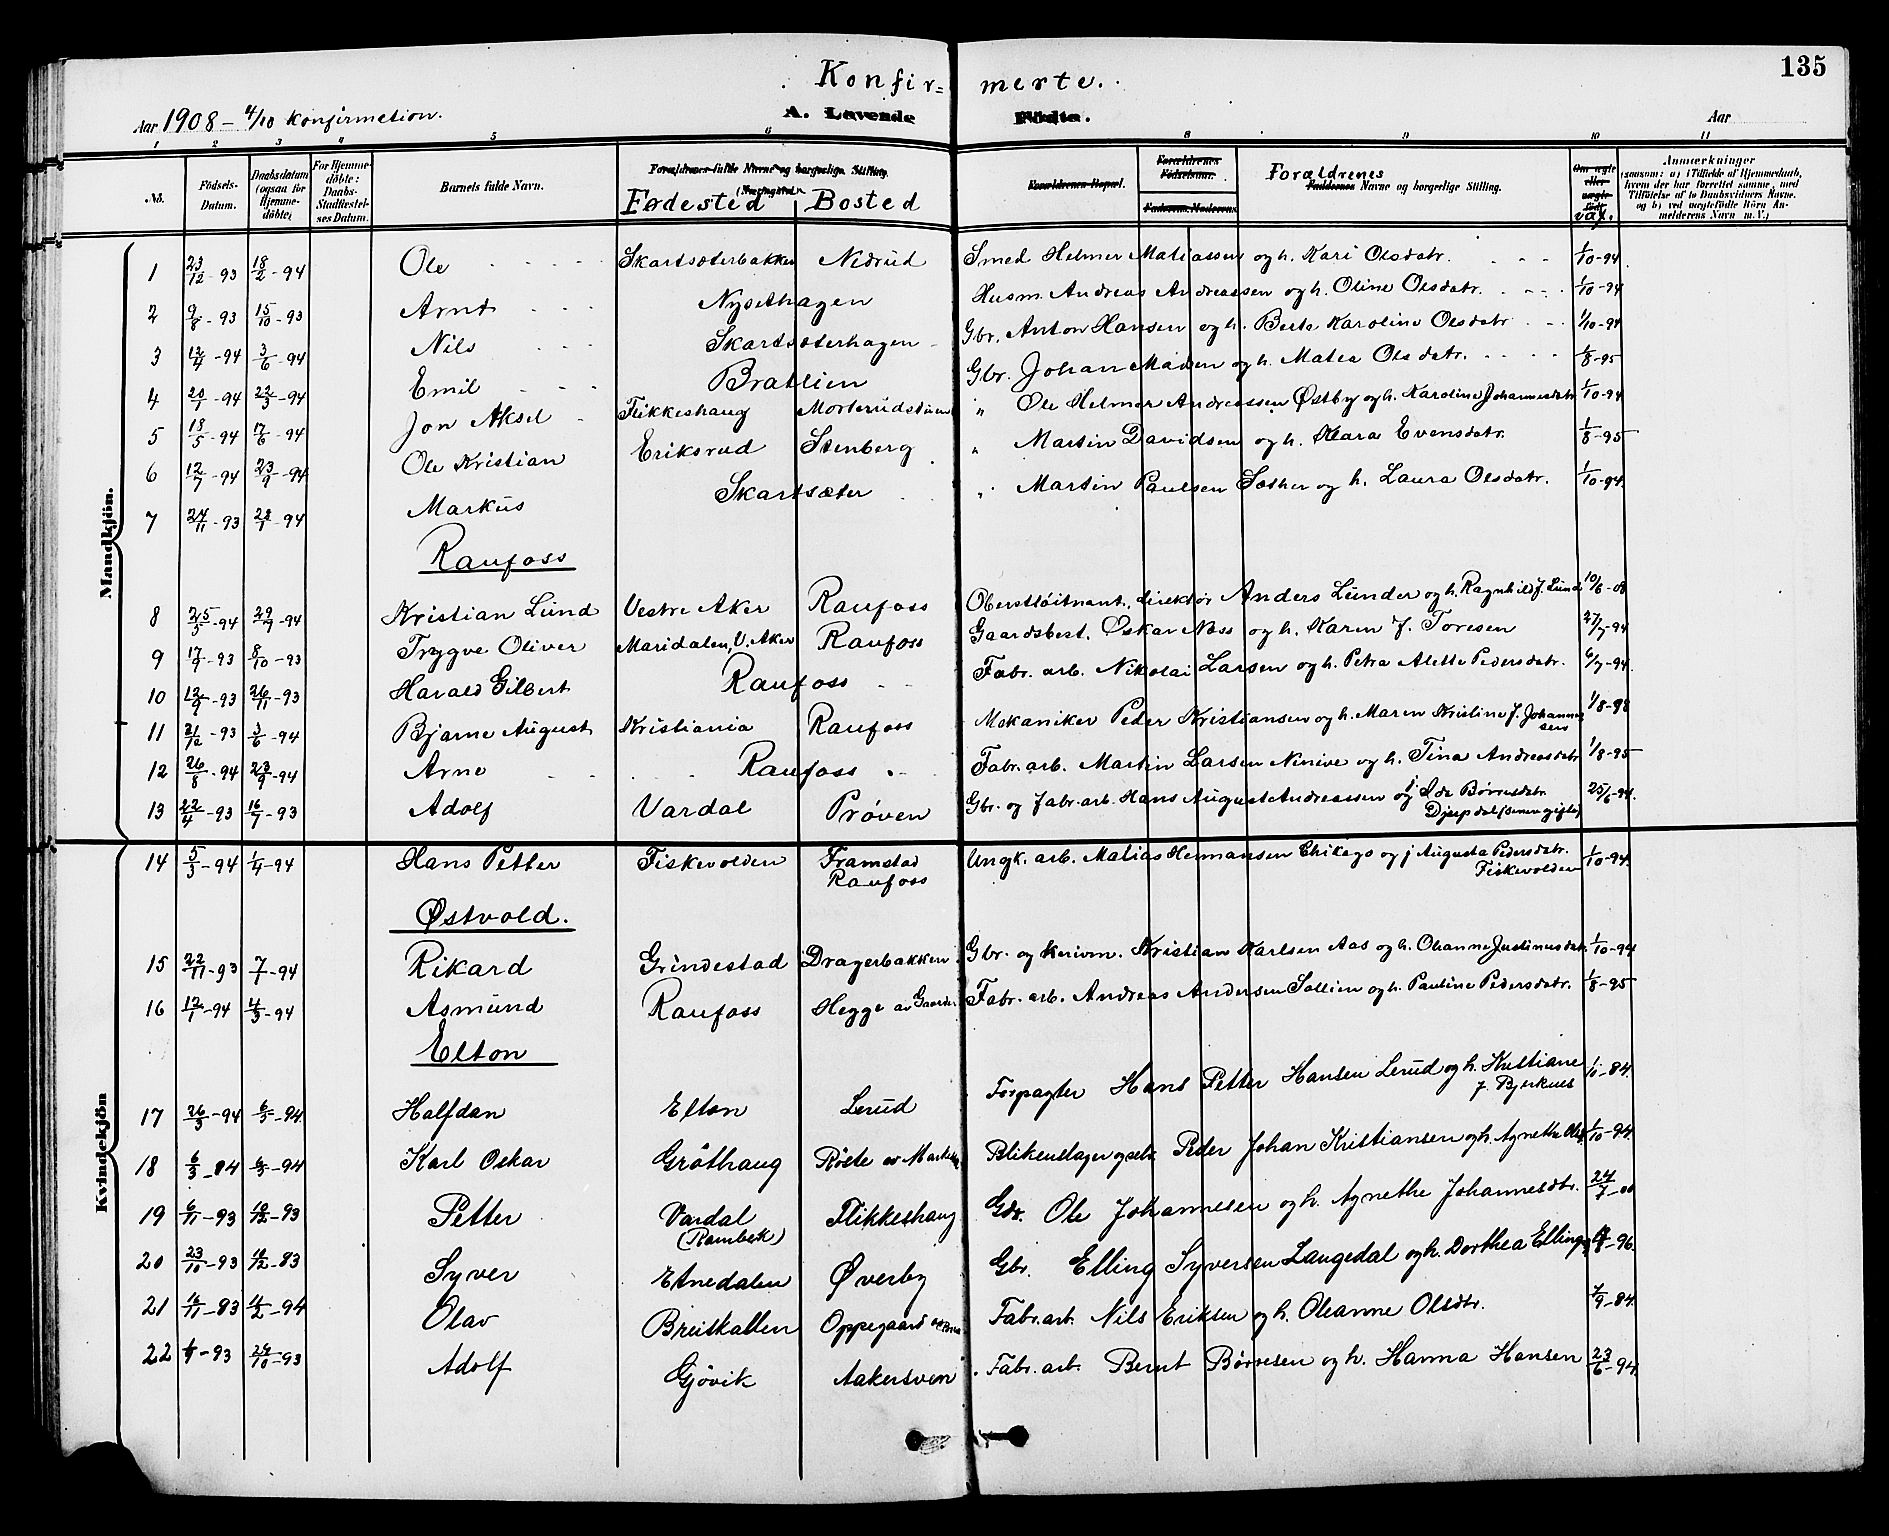 135
Konfir= merte.
Aar 1908 - 4/10 Konfirmation.
A. Levende Födte.
Aar
1 2 3 4 5 6 8 9 10 11
No. Födsels-Datum. Daabsdatum (ogsaa for Hjemme-döbte) For Hjemme-döbte: Daabs-Stadfæstel-ses Datum. Barnets fulde Navn. Forældrenes fulde Navne og borgerlige Stilling. Fødested Bosted Forældrenes Bopæl. Forældrenes Födselsaar. Faderens Moderens Forældrenes Faddernes Navne og borgerlige Stilling. Om ægte eller uægte født vax. Anmærkninger (saasom: a) i Tilfælde af Hjemmedaab, hvem der har forrettet samme, med Tilföielse af to Daabsvidners Navne. og b) ved uægtefödte Börn Anmelderens Navn m. V.)
Mandkjön.
1 23/12-93 18/2-94 Ole Skartsæterbakken Nedrud Smed Helmer Matiassen og h. Kari Olsdatr. 1/10-94
2 9/8-93 15/10-93 Arnt Nysethagen Husm. Andreas Andreassen og h. Oline Olsdatr. 1/10-94
3 12/4-94 3/6-94 Nils Skartsæterhagen Gbr. Anton Hansen og h. Berte Karoline Olsdatr 1/10-94
4 20/1-94 22/3-94 Emil Bratlien Gbr. Johan Madsen og h. Matea Olsdatr. 1/8-95
5 18/5-94 17/6-94 Jon Aksel Flikkeshaug Morterudstuen " Ole Helmer Andreassen Østby og h. Karoline Johannesdatr 1/10-94
6 12/7-94 23/9-94 Ole Kristian Eriksrud Stenberg " Martin Davidsen og h. Klara Evensdatr. 1/8-95
7 24/11-93 28/1-94 Markus Skartsæter " Martin Paulsen Sæther og h. Laura Olsdatr. 1/10-94
Raufoss
8 25/3-94 29/9-94 Kristian Lund Vestre Aker Raufoss Oberstløitnant, direktør Anders Lunder og h. Ragnhild f. Lund 10/6-08
9 17/9-93 8/10-93 Trygve Oliver Maridalen, V. Aker Raufoss Gaardsbest. Oskar Næss og h. Karen f. Toresen 27/7-94
10 12/9-93 26/11-93 Harald Gilbert Raufoss Fabr. arb. Nikolai Larsen og h. Petra Alette Pedersdatr. 6/7-94
11 21/12-93 3/6-94 Bjarne August Kristiania Raufoss Mekaniker Peder Kristiansen og h. Maren Kristine f. Johannes
sen 1/8-98
12 26/8-94 23/9-94 Arne Raufoss Fabr. arb. Martin Larsen Ninive og h. Tina Andreasdatr 1/8-95
13 22/4-93 16/7-93 Adolf Vardal Prøven Gbr. og fabr. arb. Hans August Andreassen og j Ida Børresdatr
Djupdal (senere gifte) 25/6-94.
Kvindekjön
14 5/3-94 1/4-94 Hans Petter Fiskevolden Framstad
Raufoss Ungk. arb. Matias Hermansen Chikago og j Augusta Pedersdatr.
Fiskevolden 1/10-94
Østvold.
15 22/11-93 7/1-94 Rikard Grindestad Dragerbakken Gbr. og Kirkem. Kristian Karlsen Aas og h. Ohanne Justinusdatr. 1/10-94
16 12/1-94 4/3-94 Asmund Raufoss Hegge av Gaarder Fabr. arb. Andreas Andersen Sollien og h. Pauline Pedersdatr. 1/8-95
Elton
17 26/3-94 6/5-94 Halfdan Elton Lerud Forpagter Hans Petter Hansen Lerud og h. Kristiane
f. Bjerknes 1/10-84
18 6/3-84 6/5-94 Karl Oskar Gråthaug Røste av Blikenslager og selv Peder Johan Kristiansen og h. Agnethe Olsd. 1/10-94
19 6/11-93 10/12-93 Petter Vardal
(Rambek) Flikkeshaug Gbr. Ole Johannesen og h. Agnethe Johannesdtr. 24/7-00
20 23/10-93 10/12-83 Syver Etnedalen Øverby Gbr. Elling Syversen Langedal og h. Dorthea Ellings -96
21 6/11-83 4/2-94 Olav Breiskallen Oppegaard Fabr. arb. Nils Eriksen og h. Oleanne Olsdtr. 7/9-84
22 -93 29/10-93 Adolf Gjøvik Aakersveen Fabr. arb. Bernt Børresen og h. Hanna Hansen 23/6-94